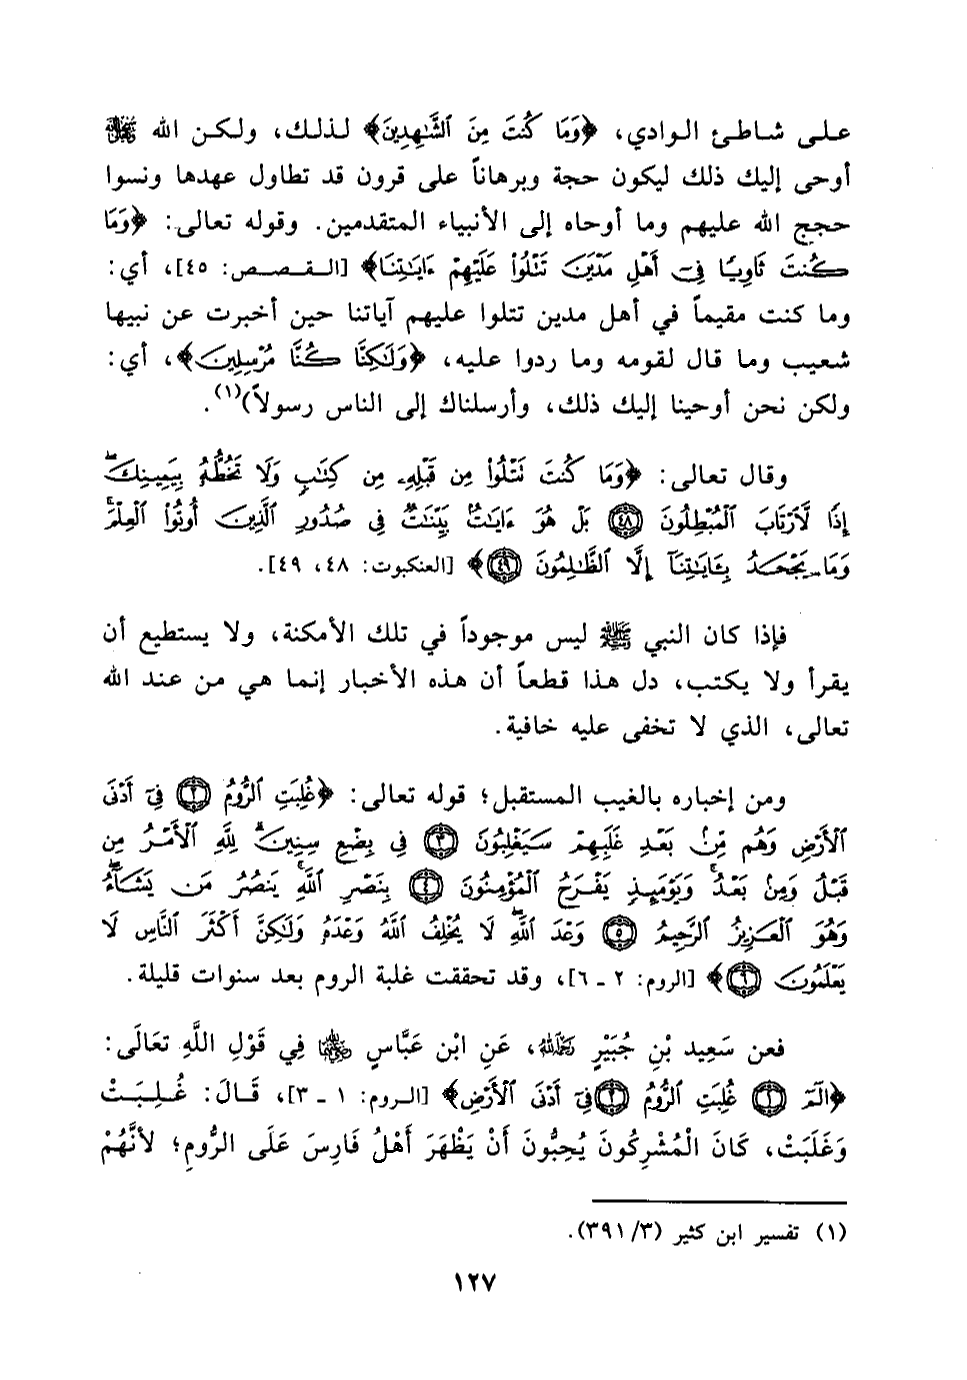 على شاطئ الوادي، ﴿وَمَا كُنتَ مِنَ ٱلشَّٰهِدِينَ﴾ لذلك، ولكن الله ﷻ
أوحى إليك ذلك ليكون حجة وبرهاناً على قرون قد تطاول عهدها ونسوا
حجج الله عليهم وما أوحاه إلى الأنبياء المتقدمين. وقوله تعالى: ﴿وَمَا
كُنتَ ثَاوِيًا فِىٓ أَهْلِ مَدْيَنَ تَتْلُواْ عَلَيْهِمْ ءَايَٰتِنَا﴾ [القصص: ٤٥]، أي:
وما كنت مقيماً في أهل مدين تتلوا عليهم آياتنا حين أخبرت عن نبيها
شعيب وما قال لقومه وما ردوا عليه، ﴿وَلَٰكِنَّا كُنَّا مُرْسِلِينَ﴾، أي:
ولكن نحن أوحينا إليك ذلك، وأرسلناك إلى الناس رسولاً)(١).
وقال تعالى: ﴿وَمَا كُنتَ تَتْلُواْ مِن قَبْلِهِۦ مِن كِتَٰبٍ وَلَا تَخُطُّهُۥ بِيَمِينِكَۖ
إِذًا لَّٱرْتَابَ ٱلْمُبْطِلُونَ ٤٨ بَلْ هُوَ ءَايَٰتٌۢ بَيِّنَٰتٌ فِى صُدُورِ ٱلَّذِينَ أُوتُواْ ٱلْعِلْمَۚ
وَمَا يَجْحَدُ بِـَٔايَٰتِنَآ إِلَّا ٱلظَّٰلِمُونَ ٤٩﴾ [العنكبوت: ٤٨، ٤٩].
فإذا كان النبي ﷺ ليس موجوداً في تلك الأمكنة، ولا يستطيع أن
يقرأ ولا يكتب، دل هذا قطعاً أن هذه الأخبار إنما هي من عند الله
تعالى، الذي لا تخفى عليه خافية.
ومن إخباره بالغيب المستقبل؛ قوله تعالى: ﴿غُلِبَتِ ٱلرُّومُ ٢ فِىٓ أَدْنَى
ٱلْأَرْضِ وَهُم مِّنۢ بَعْدِ غَلَبِهِمْ سَيَغْلِبُونَ ٣ فِى بِضْعِ سِنِينَۗ لِلَّهِ ٱلْأَمْرُ مِن
قَبْلُ وَمِنۢ بَعْدُۚ وَيَوْمَئِذٍ يَفْرَحُ ٱلْمُؤْمِنُونَ ٤ بِنَصْرِ ٱللَّهِۚ يَنصُرُ مَن يَشَآءُۖ
وَهُوَ ٱلْعَزِيزُ ٱلرَّحِيمُ ٥ وَعْدَ ٱللَّهِۖ لَا يُخْلِفُ ٱللَّهُ وَعْدَهُۥ وَلَٰكِنَّ أَكْثَرَ ٱلنَّاسِ لَا
يَعْلَمُونَ ٦﴾ [الروم: ٢ ـ ٦]، وقد تحققت غلبة الروم بعد سنوات قليلة.
فعن سَعِيد بْنِ جُبَيْرٍ رَحِمَهُ اللهُ، عَنِ ابْنِ عَبَّاسٍ رَضِيَ اللهُ عَنْهُ فِي قَوْلِ اللَّهِ تَعَالَى:
﴿الٓمٓ ١ غُلِبَتِ ٱلرُّومُ ٢ فِىٓ أَدْنَى ٱلْأَرْضِ﴾ [الروم: ١ ـ ٣]، قَالَ: غُلِبَتْ
وَغَلَبَتْ، كَانَ الْمُشْرِكُونَ يُحِبُّونَ أَنْ يَظْهَرَ أَهْلُ فَارِسَ عَلَى الرُّومِ؛ لأنَّهُمْ
(١) تفسير ابن كثير (٣/ ٣٩١).
١٢٧